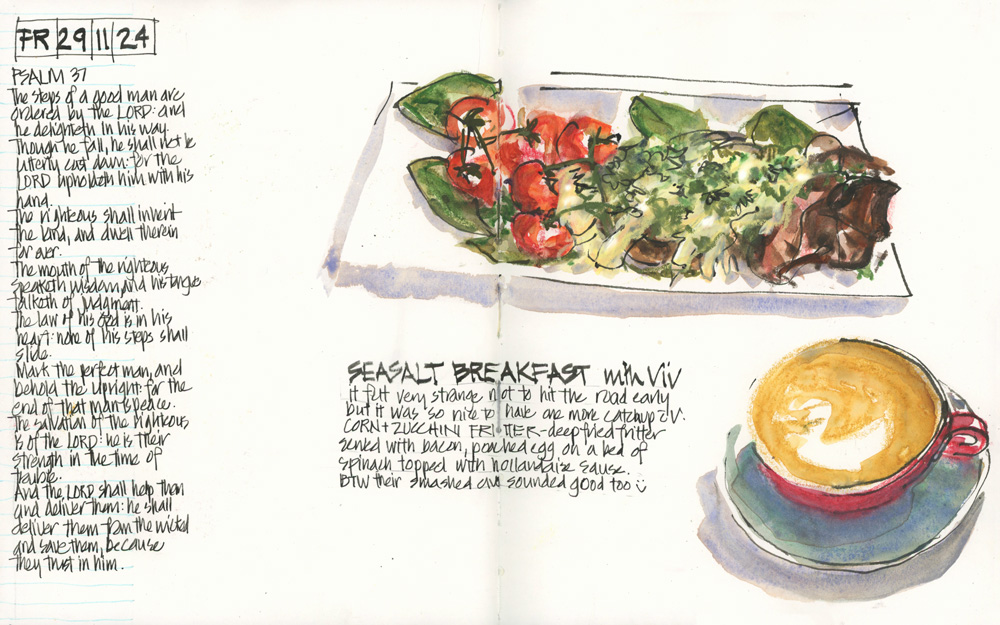 FR 29 11 24
PSALM 37
The steps of a good man are
ordered by the LORD: and
he delighteth in his way.
Though he fall, he shall not be
utterly cast down: for the
LORD upholdeth him with his
hand.
The righteous shall inherit
the land, and dwell therein
for ever.
The mouth of the righteous
speaketh wisdom, and his tongue
talketh of judgment.
The law of his God is in his
heart: none of his steps shall
slide.
Mark the perfect man, and
behold the upright: for the
end of that man is peace.
The salvation of the righteous
is of the LORD: he is their
strength in the time of
trouble.
And the LORD shall help them
and deliver them: he shall
deliver them from the wicked
and save them, because
they trust in him.
SEASALT BREAKFAST with Viv
it felt very strange not to hit the road early
but it was so nice to have one more catchup c̄ V.
CORN + ZUCCHINI FRITTER - deep fried fritter
served with bacon, poached egg on a bed of
spinach topped with hollandaise sause.
BTW their smashed avo sounded good too